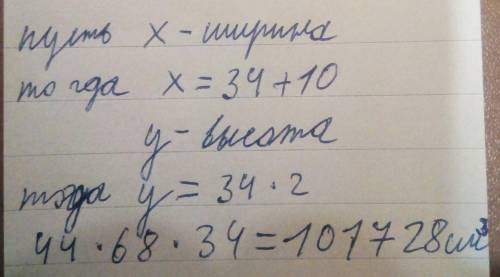 пусть x - ширина
тогда x = 34 + 10
y - высота
тогда y = 34 · 2
44 · 68 · 34 = 101728 см³